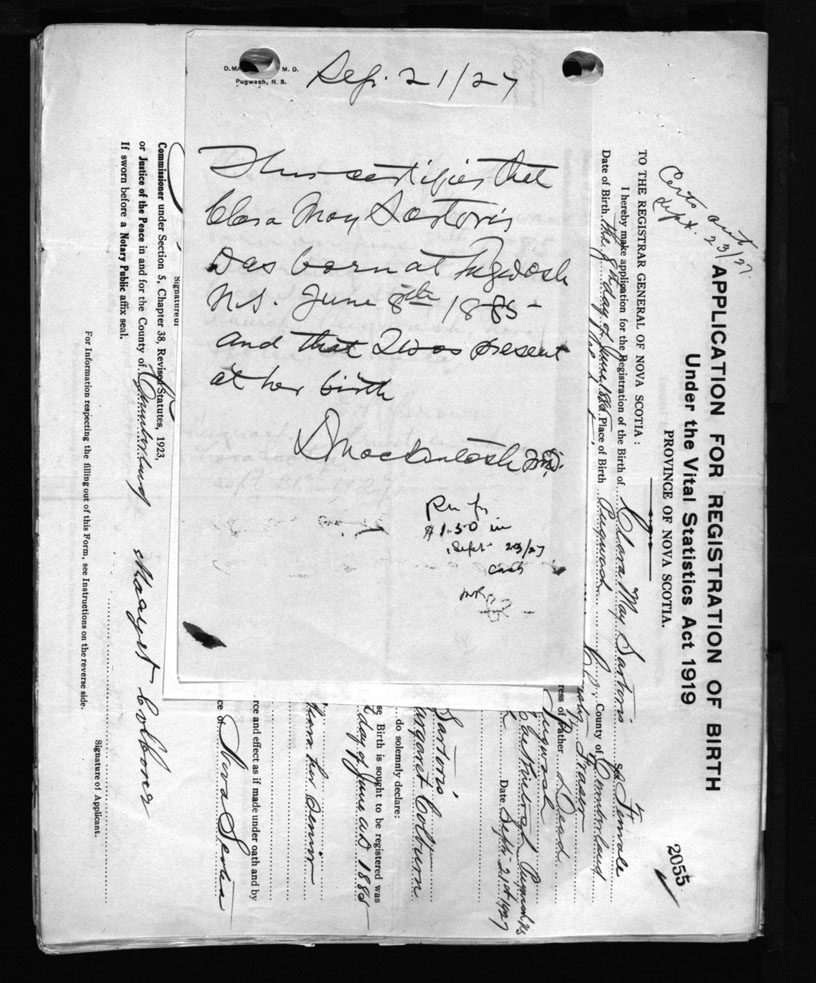 M. D.
Pugwash, N. S.
Sep. 21/27
This certifies that
Clara May Sartoris
was born at Pugwash
N.S. June 8th 1885
and that I was present
at her birth
D Mackintosh MD.
$1.50 in
Sept 23/27
cash
Sept. 23/27.
2055
APPLICATION FOR REGISTRATION OF BIRTH
Under the Vital Statistics Act 1919
PROVINCE OF NOVA SCOTIA.
TO THE REGISTRAR GENERAL OF NOVA SCOTIA :
I hereby make application for the Registration of the Birth of Clara May Sartoris Female
Date of Birth the 8th day of June 1885 Place of Birth Pugwash County of Cumberland
Fraser
ress of Father Dead
Pugwash
Pugwash NS
Date Sept 21st 1927
Sartoris
argaret Colburn
do solemnly declare:
se Birth is sought to be registered was
day of June AD 1885
her senior
rce and effect as if made under oath and by
ce of Nova Scotia
Signature of
Commissioner under Section 5, Chapter 38, Revised Statutes, 1923,
or Justice of the Peace in and for the County of Cumberland
If sworn before a Notary Public affix seal.
Margaret Colborne
Signature of Applicant.
For Information respecting the filling out of this Form, see Instructions on the reverse side.